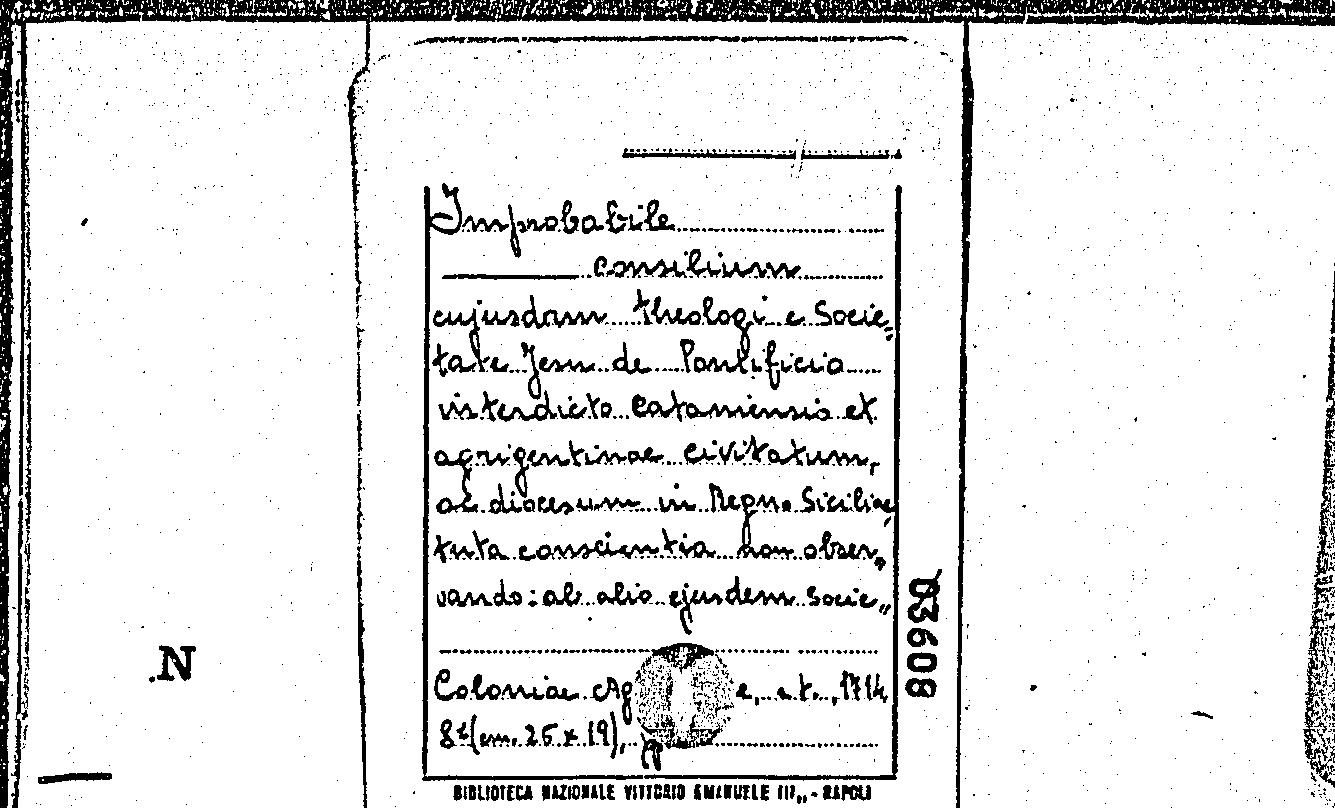 Improbabile
consilium
cujusdam theologi e Socie„
tate Jesu de Pontificio
interdicto Cataniensis et
agrigentinae civitatum,
ac diocesum in Regno Siciliae,
tuta conscientia non obser„
vando: ab alio ejusdem Socie„
Coloniae Ag e, a.t., 1714
8º (cm. 26 x 19),
BIBLIOTECA NAZIONALE VITTORIO EMANUELE III,, - NAPOLI
03608
.N